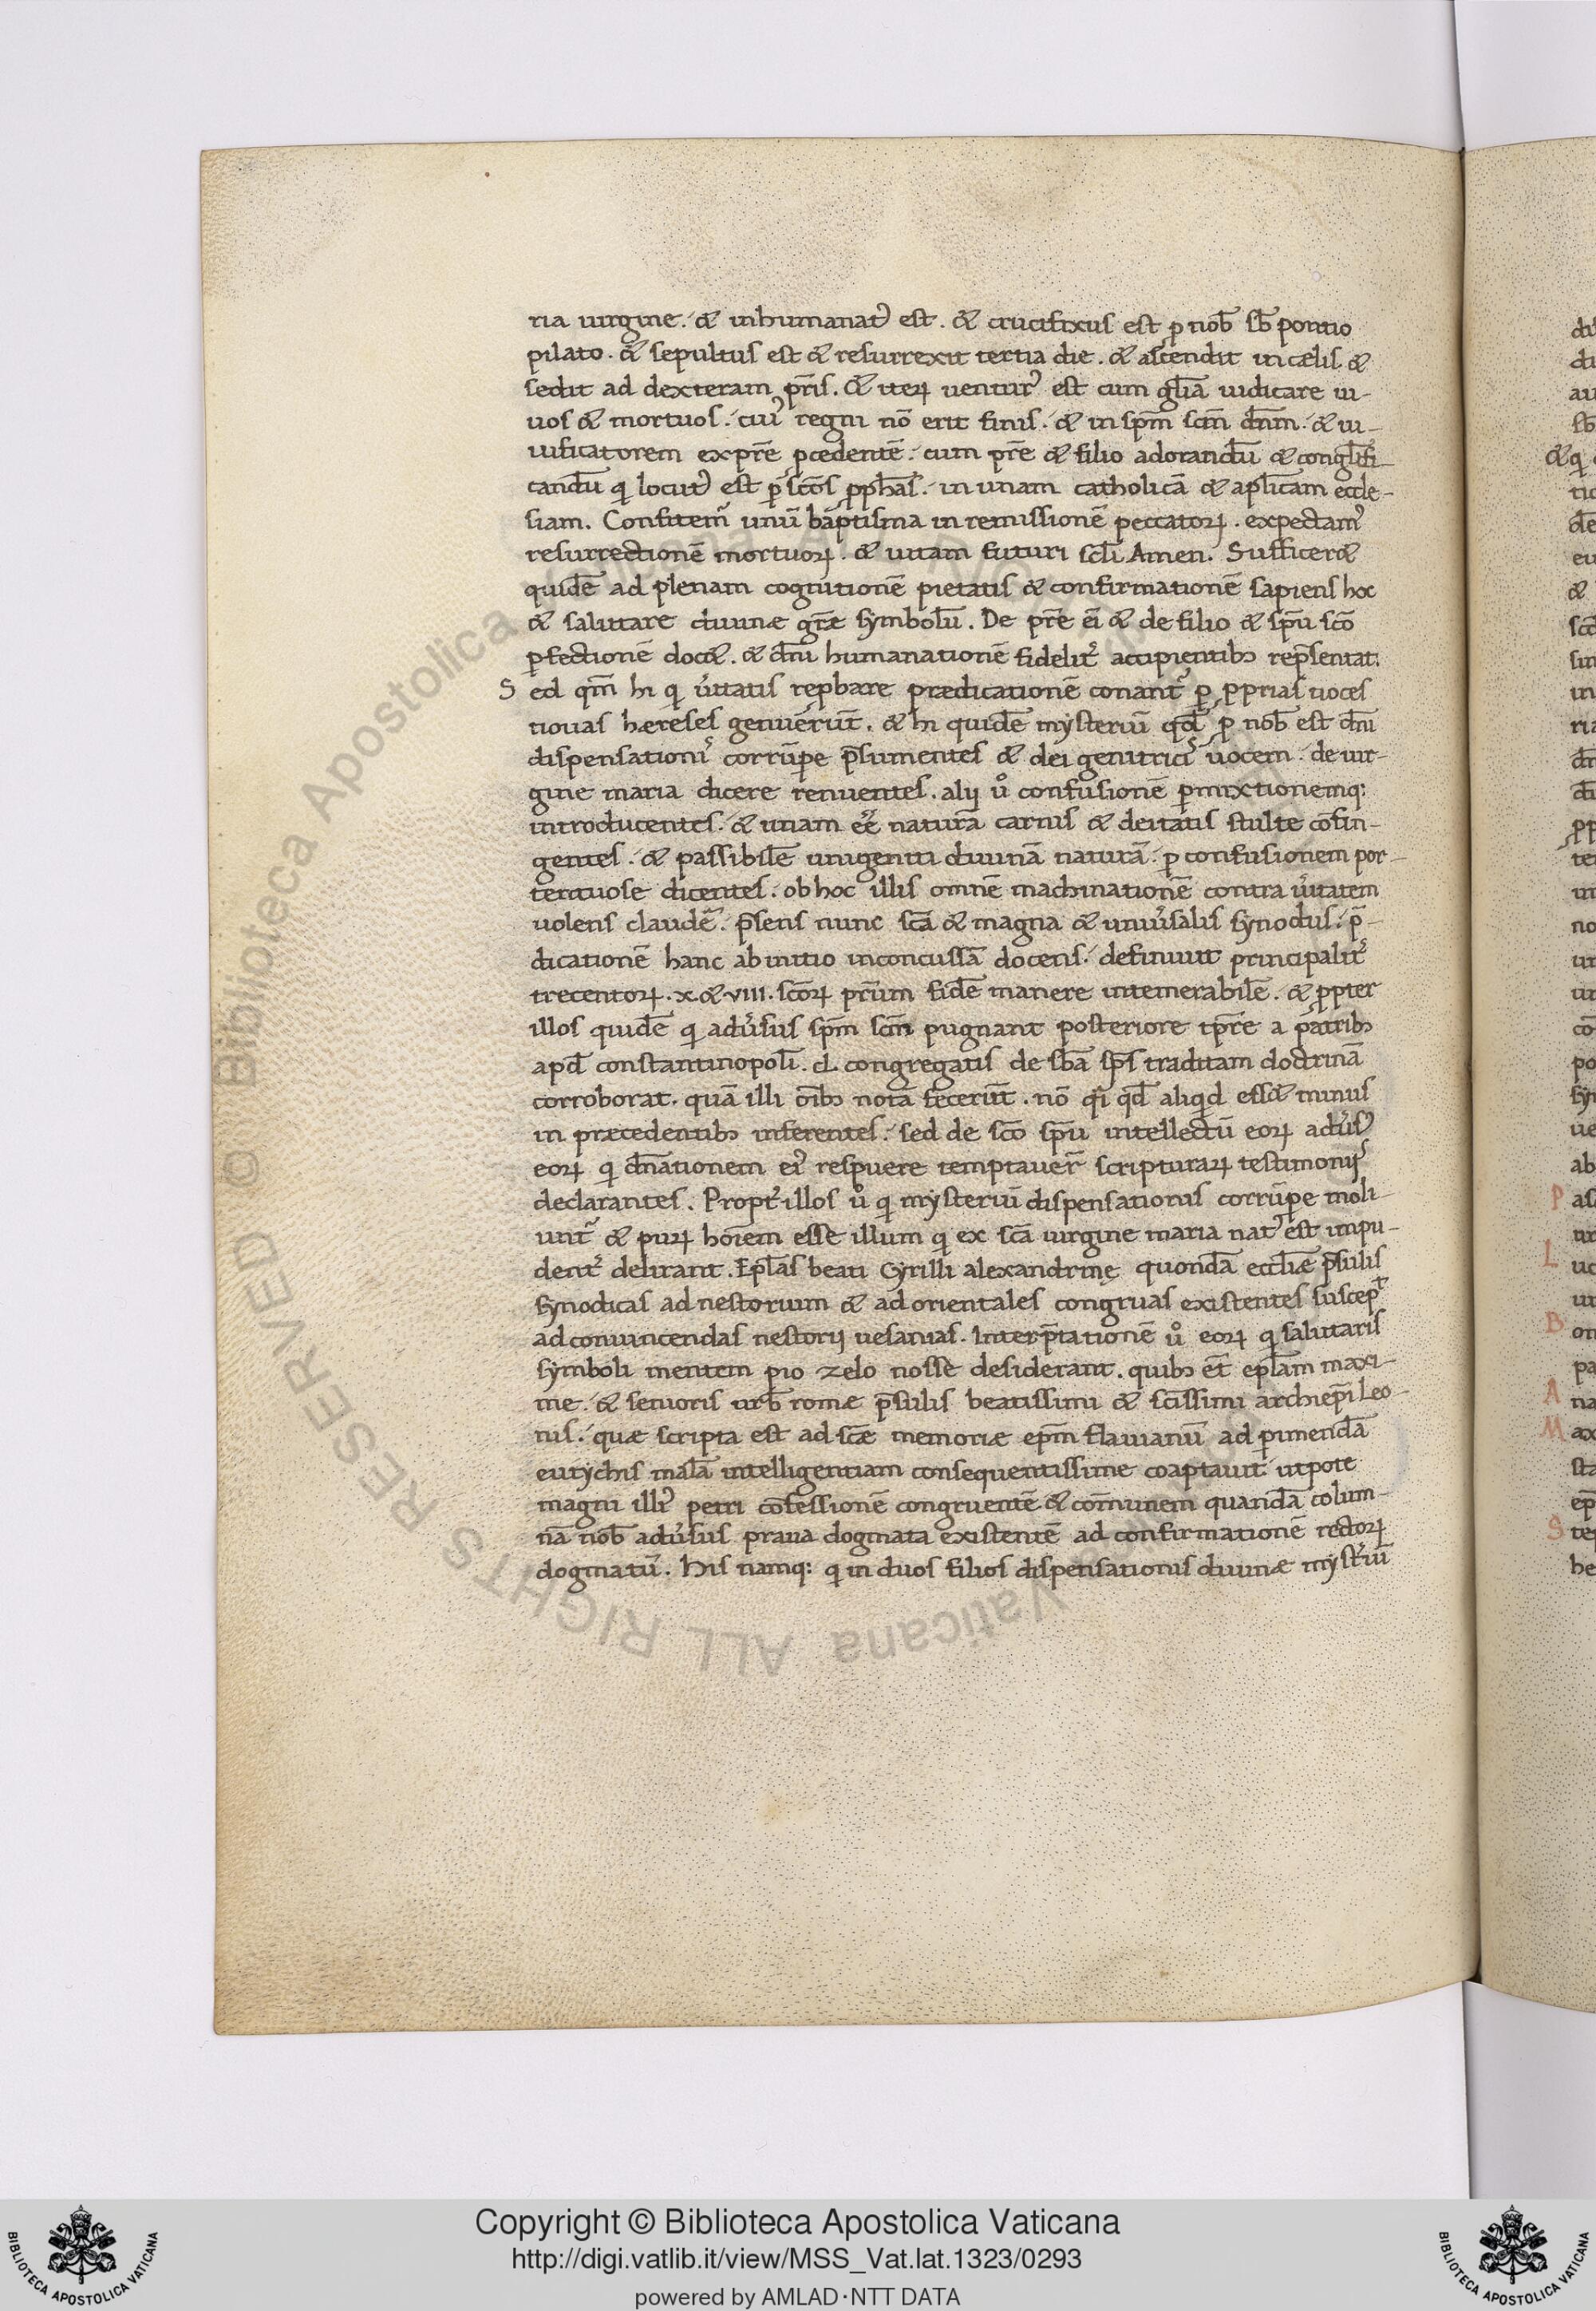 ria uirgine. & inhumanat᾽ est. & crucifixus est p nob̄ sb̄ pontio
pilato. & sepultus est & resurrexit tertia die. & ascendit in cælis &
sedit ad dexteram pr̄is. & iterꝝ uentur᾽ est cum gl̄ia iudicare ui-
uos & mortuos. cui᾽ regni nō erit finis. & in sp̄m sc̄m dn̄m. & ui-
uificatorem ex pr̄e ꝓcedentē. cum pr̄e & filio adorandū & conglifi-
candū q̄ locut᾽ est p̱ sc̄os ꝓph̄as. in unam catholicā & apl̄icam eccle-
siam. Confitem᾽ unū baptisma in remissionē peccatorꝝ. expectam᾽
resurrectionē mortuorꝝ. & uitam futuri sc̄li Amen. Suffícer&
quidē ad plenam cognitionē pietatis & confirmationē sapiens hoc
& salutare diuinæ gr̄æ symbolū. De pr̄e ei & de filio & sp̄u sc̄o
ꝑfectionē doc&. & dn̄i humanationē fidelit᾽ accipientibꝫ rep̄sentat.
S ed qm̄ hi q̄ u᾽itatis reꝓbare prædicationē conant᾽ ꝑ ꝓprias uoces
nouas hæreses genuerūt. & hi quidē mysteriū qd̄ ꝑ nob̄ est dn̄i
dispensationi᾽ corrūpe p̄sumentes & dei genitrici᾽ uocem. de uir-
gine maria dicere renuentes. alij u᾽o confusionē ꝑmixtionemq:
introducentes. & unam eē᾽ naturā carnis & deitatis stulte cōfin-
gentes. & passibilē unigeniti diuinā naturā. ꝑ confusionem por-
tentuose dicentes. ob hoc illis omnē machinationē contra u᾽itatem
uolens claudē᾽. p̄sens nunc sc̄a & magna & uniu᾽salis synodus. p̄-
dicationē hanc ab initio inconcussā docens. definiuit principalit᾽
trecentorꝝ. x. & viii. sc̄orꝝ pr̄um fidē manere intemerabilē. & ꝓpter
illos quidē q̄ adu᾽sus sp̄m sc̄m pugnant posteriore tp̄re a patribꝫ
apd̄ constantinopolī. cl. congregatis de sb̄a sp̄s traditam doctrinā
corroborat. quā illi oībꝫ notā fecerūt. nō q̄i qd̄ aliqd ess& minus
in præcedentibꝫ inferentes. sed de sc̄o sp̄u intellectū eorꝝ adu᾽s᾽
eorꝝ q̄ dn̄ationem ei᾽ respuere temptauer̄ scripturarꝝ testimonij᾽
declarantes. Propt᾽ illos u᾽o q̄ mysteriū dispensationis corrūpe moli-
unt᾽ & purꝝ hoīem esse illum q̄ ex sc̄a uirgine maria nat᾽ est impu-
dent᾽ delirant. Epl̄as beati Cyrilli alexandrinę quondā eccl̄iæ p̄sulis
synodicas ad nestorium & ad orientales congruas existentes suscep̄
ad conuincendas nestorij uesanias. Interp̄tationē u᾽o eorꝝ q̄ salutaris
symboli mentem pio zelo nosse desiderant. quibꝫ et̄ epl̄am maxi-
me. & senioris urb̄ romæ p̄sulis beatissimi & sc̄issimi archiep̄i Leo-
nis. quæ scripta est ad sc̄æ memoriæ ep̄m flauianū ad ꝑimendā
eutychis malā intelligentiam consequentissime coaptauit utpote
magni illi᾽ petri cōfessionē congruentē & cōmunem quandā colum-
nā nob̄ adu᾽sus praua dogmata existentē ad confirmationē rectorꝝ
dogmatū. His namq: q̄ in duos filios dispensationis diuinæ myst᾽iū
Copyright © Biblioteca Apostolica Vaticana
http://digi.vatlib.it/view/MSS_Vat.lat.1323/0293
powered by AMLAD·NTT DATA